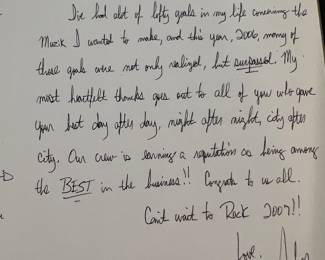 I've had alot of lofty goals in my life concerning the
Muzik I wanted to make, and this year, 2006, many of
those goals were not only realized, but surpassed. My
most heartfelt thanks goes out to all of you who gave
your best day after day, night after night, city after
city. Our crew is earning a reputation as being among
the BEST in the business!! Congrats to us all.
Can't wait to Rock 2007!!
Love,